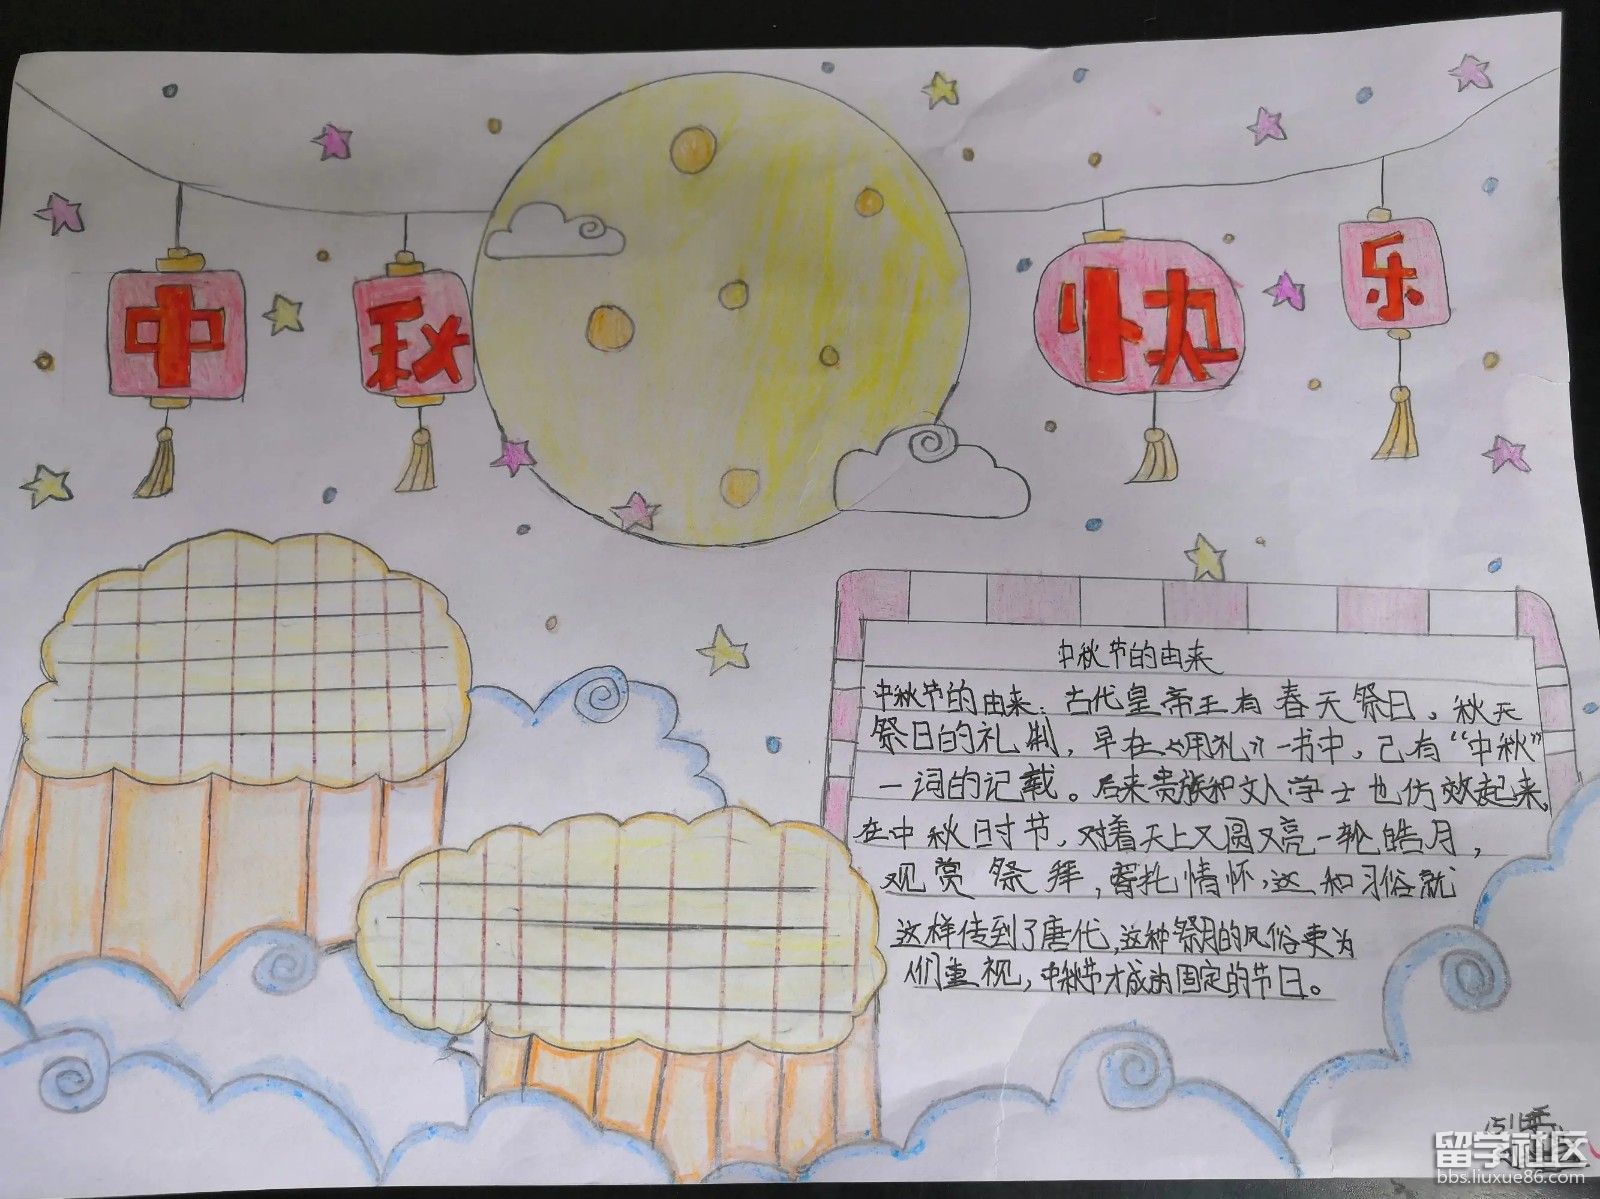 中秋快乐
中秋节的由来
中秋节的由来：古代皇帝王有春天祭日，秋天
祭日的礼制，早在《周礼》一书中，己有“中秋”
一词的记载。后来贵族和文人学士也仿效起来
在中秋时节，对着天上又圆又亮一轮皓月，
观赏祭拜，寄托情怀，这种习俗就
这样传到了唐代，这种祭月的风俗更为
人们重视，中秋节才成为固定的节日。
留学社区
bbs.liuxue86.com